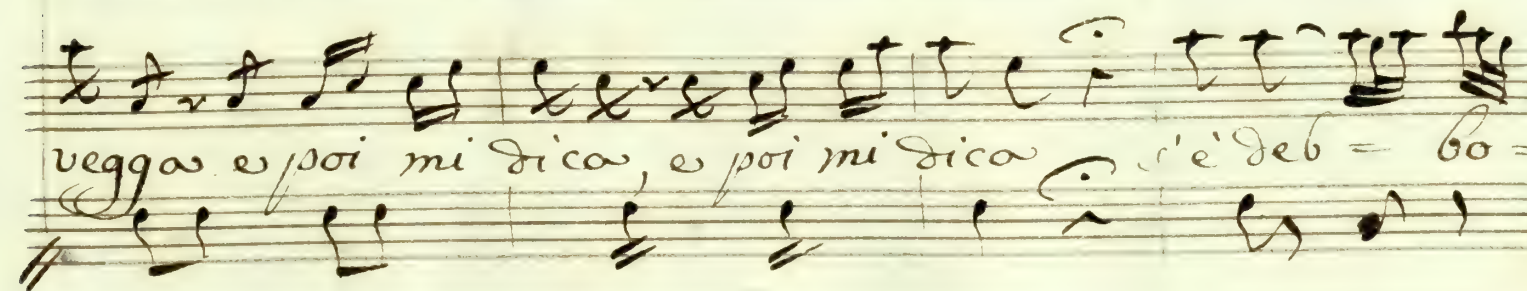 vegga e poi mi dica, e poi mi dica s'è deb = bo =